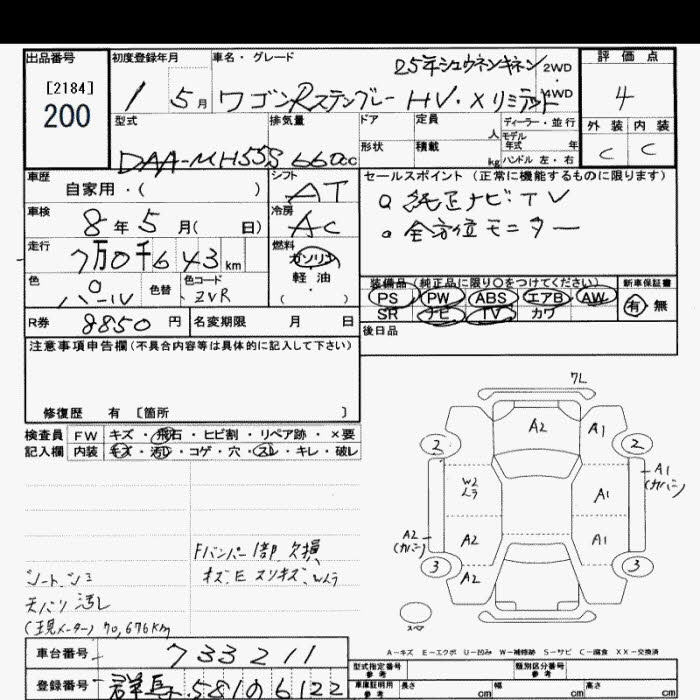 出品番号 初度登録年月 車名・グレード 評価点
[2184]
200
1 5月
25年シュウネンキネン 2WD
ワゴンRスティングレー HV・Xリミテッド 4WD
4
外装 内装
C C
型式 排気量 ドア 定員 人 ディーラー・並行
モデル年式 年
形状 積載 kg ハンドル 左・右
DAA-MH55S 660cc
車歴 自家用・( )
シフト AT
セールスポイント(正常に機能するものに限ります)
○純正ナビTV
○全方位モニター
車検 8年5月( 日)
冷房 AC
走行 7万0千643km
燃料 ガソリン
軽油
( ・ )
色 パール 色替 色コード ZVR
装備品(純正品に限り○をつけてください) 新車保証書
PS PW ABS エアB AW 有 無
SR ナビ TV カワ
R券 8850円 名変期限 月 日
後日品
注意事項申告欄(不具合内容等は具体的に記入して下さい)
修復歴 有 [箇所 ]
検査員 FW キズ・飛石・ヒビ割・リペア跡・×要
記入欄 内装 キズ・汚れ・コゲ・穴・スレ・キレ・破レ
7L
A2 A1
2 2
W2
ムラ
A1
A1
(カバー)
A2
(カバー)
A2 A1
3 3
A2
スペア
Fバンパー1部欠損
キズ、E スリキズ、Wムラ
シートシミ
天バリ汚れ
(現メーター) 70,676Km
A-キズ E-エクボ U-凹み W-補修跡 S-サビ C-腐食 XX-交換済
車台番号 733211
登録番号 群馬 581 も 6122
型式指定番号 類別区分番号
参考 参考
車庫証明用 長さ cm 幅 cm 高さ cm
参考